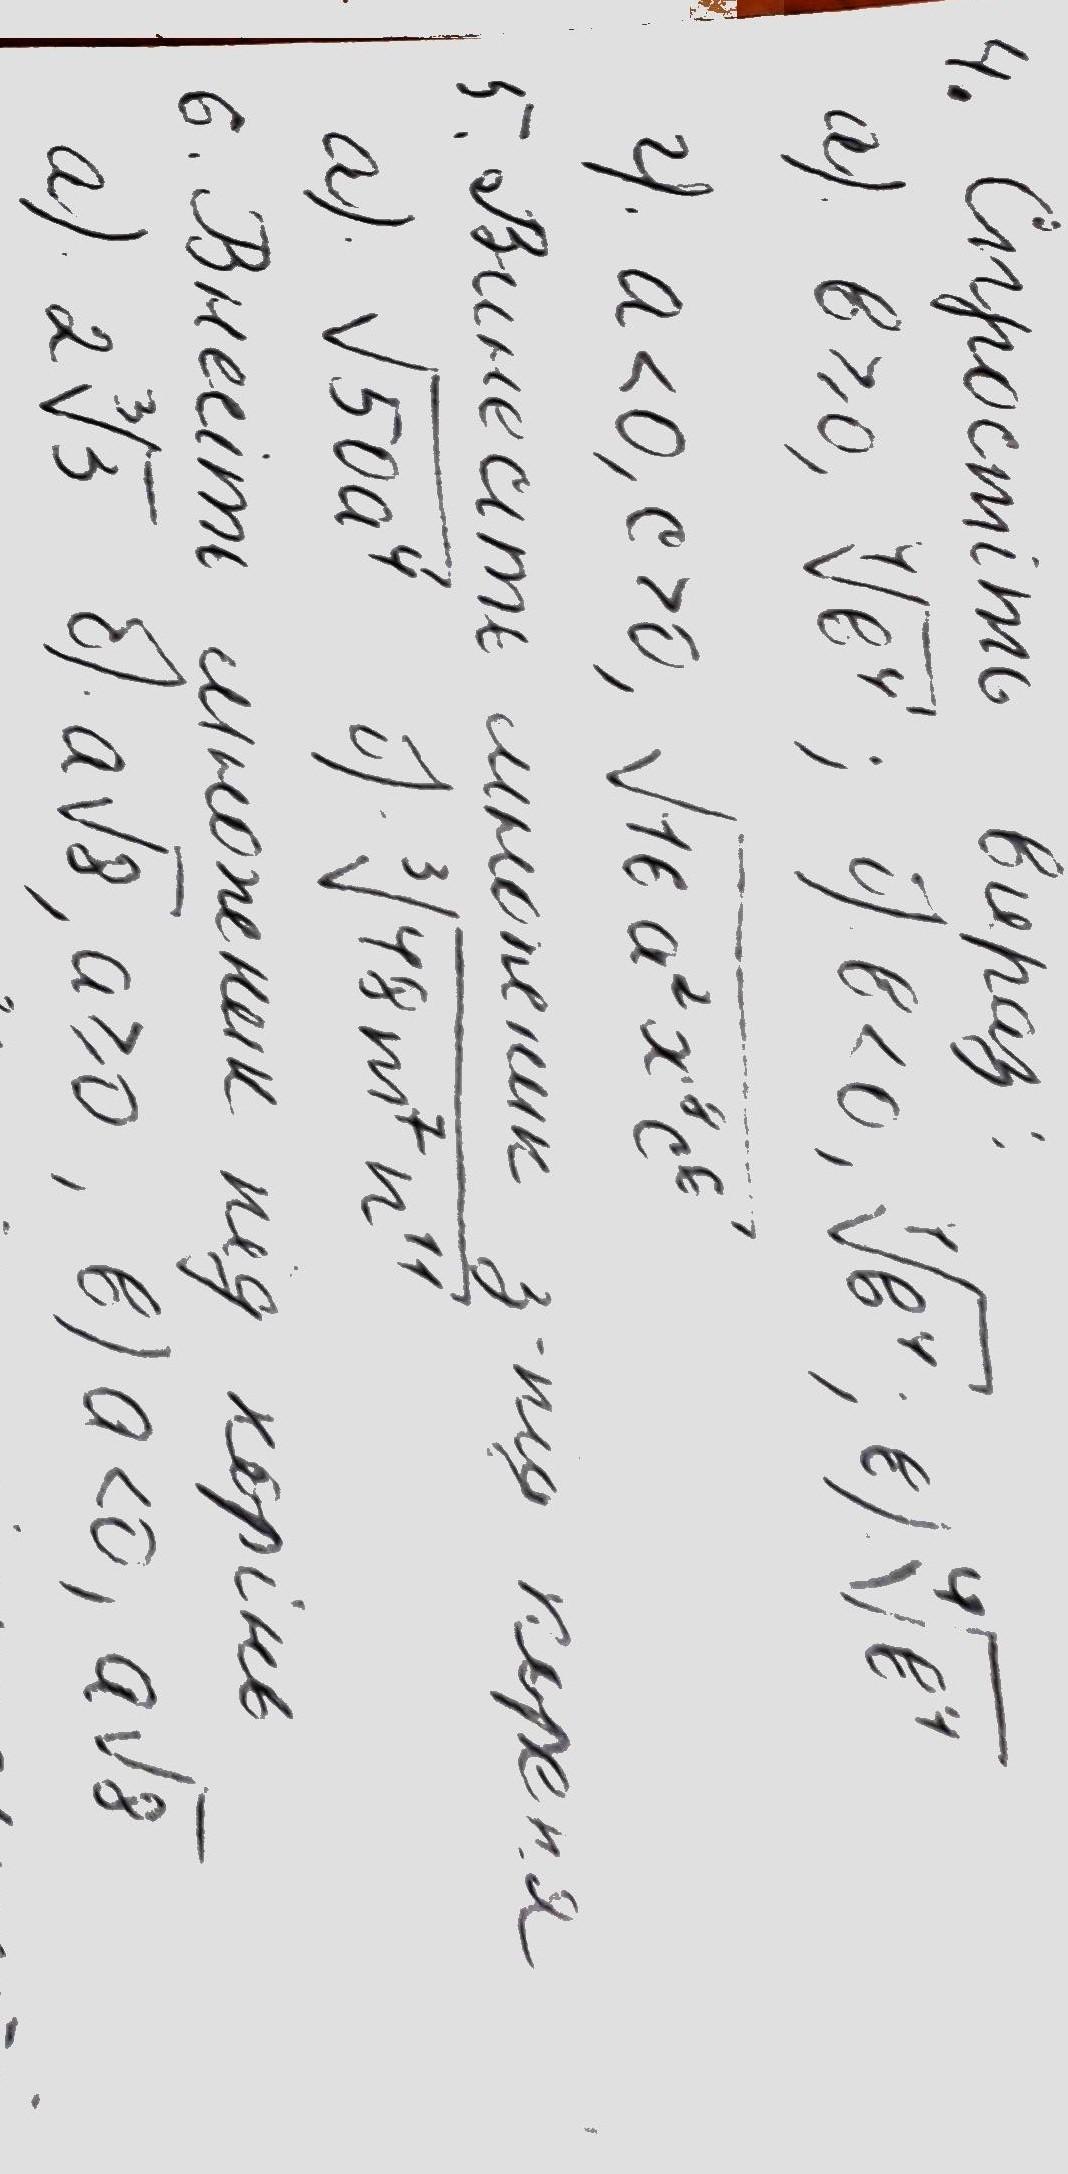 4. Спростіть вираз:
а). в ≥ 0, ∜в⁴ ; б) в < 0, ∜в⁴ ; в) ∜в⁴
г). a < 0, c > 0, √16a²x⁸c⁶
5. Винесіть множник з-під кореня
а). √50a⁴ б). ∛48m⁷n¹¹
6. Внесіть множник під корінь
а). 2∛3 б). a√8, a ≥ 0, в) a < 0, a√8